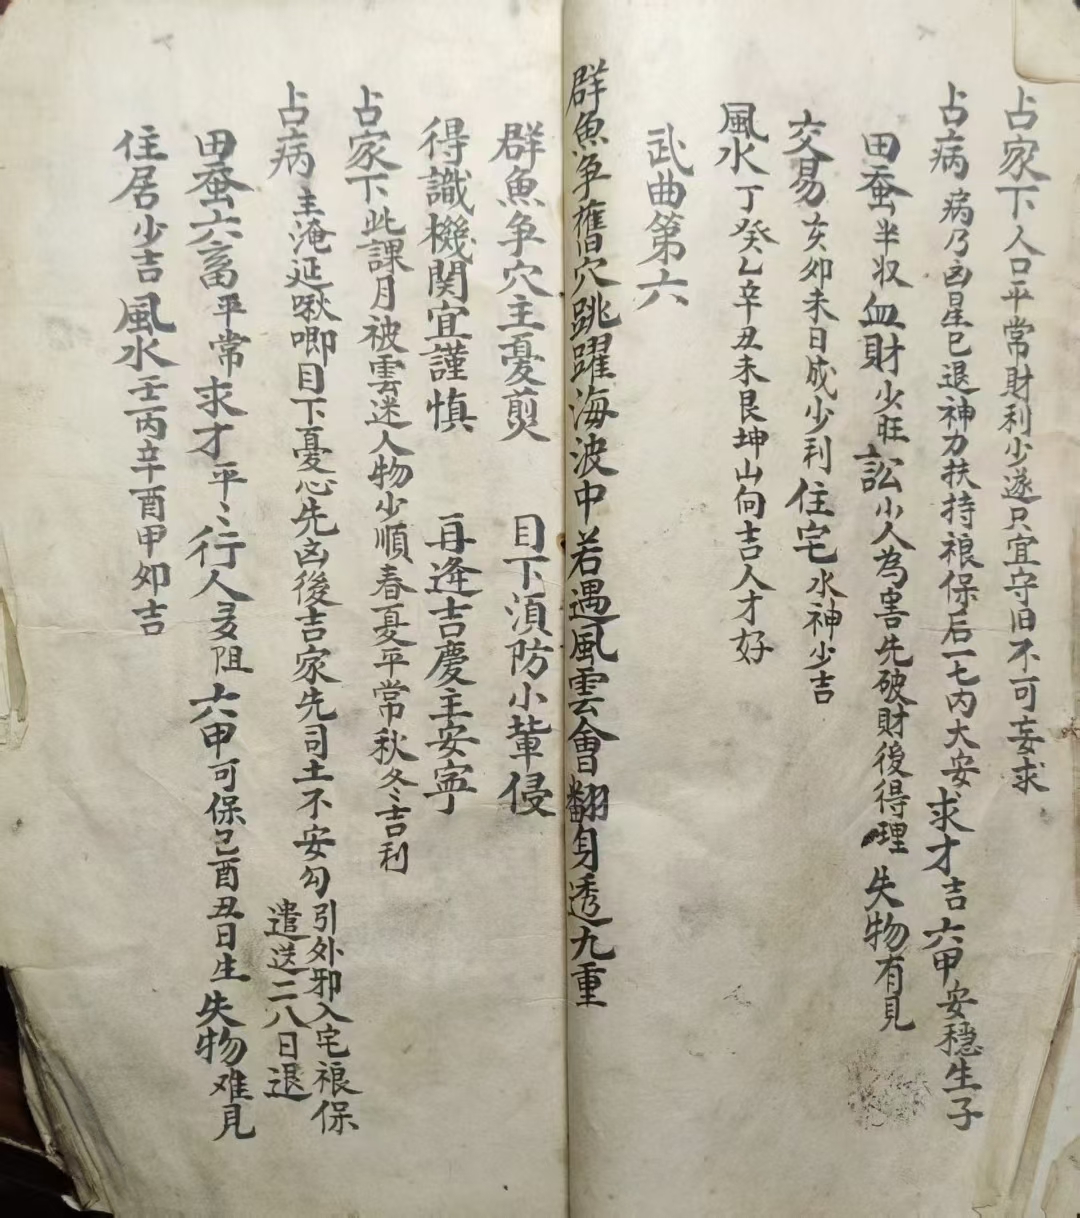 占家下人口平常財利少遂只宜守旧不可妄求
占病病乃凶星已退神力扶持禳保后一七内大安求才吉六甲安穏生子
田蚕半収血財少旺訟小人為害先破財後得理失物有見
交易亥卯未日成少利住宅水神少吉
風水丁癸乙辛丑未艮坤山向吉人才好
武曲第六
群魚争舊穴跳躍海波中若遇風雲會翻身透九重
群魚争穴主憂煎 目下須防小輩侵
得識機関宜謹慎 再逢吉慶主安寧
占家下此課月被雲迷人物少順春夏平常秋冬吉利
占病主淹延啾唧目下憂心先凶後吉家先司土不安勾引外邪入宅禳保
遣送二八日退
田蚕六畜平常求才平〻行人多阻六甲可保巳酉丑日生失物难見
住居少吉風水壬丙辛酉甲卯吉